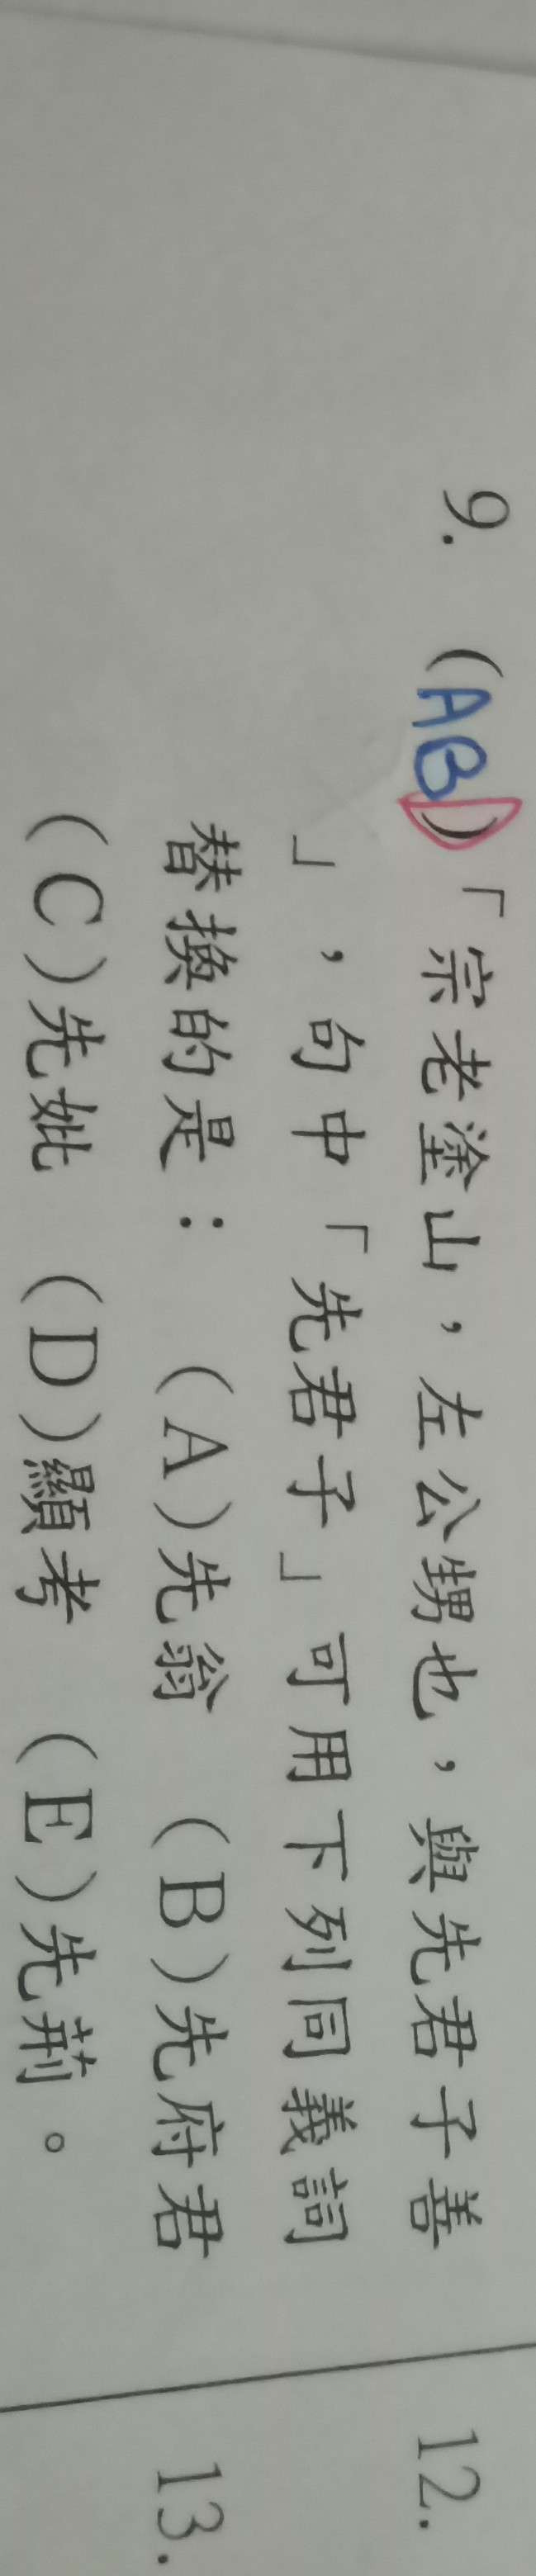 9. (AB)「宗老塗山，左公甥也，與先君子善
」，句中「先君子」可用下列同義詞
替換的是： (A)先翁 (B)先府君
(C)先妣 (D)顯考 (E)先荊。
12.
13.